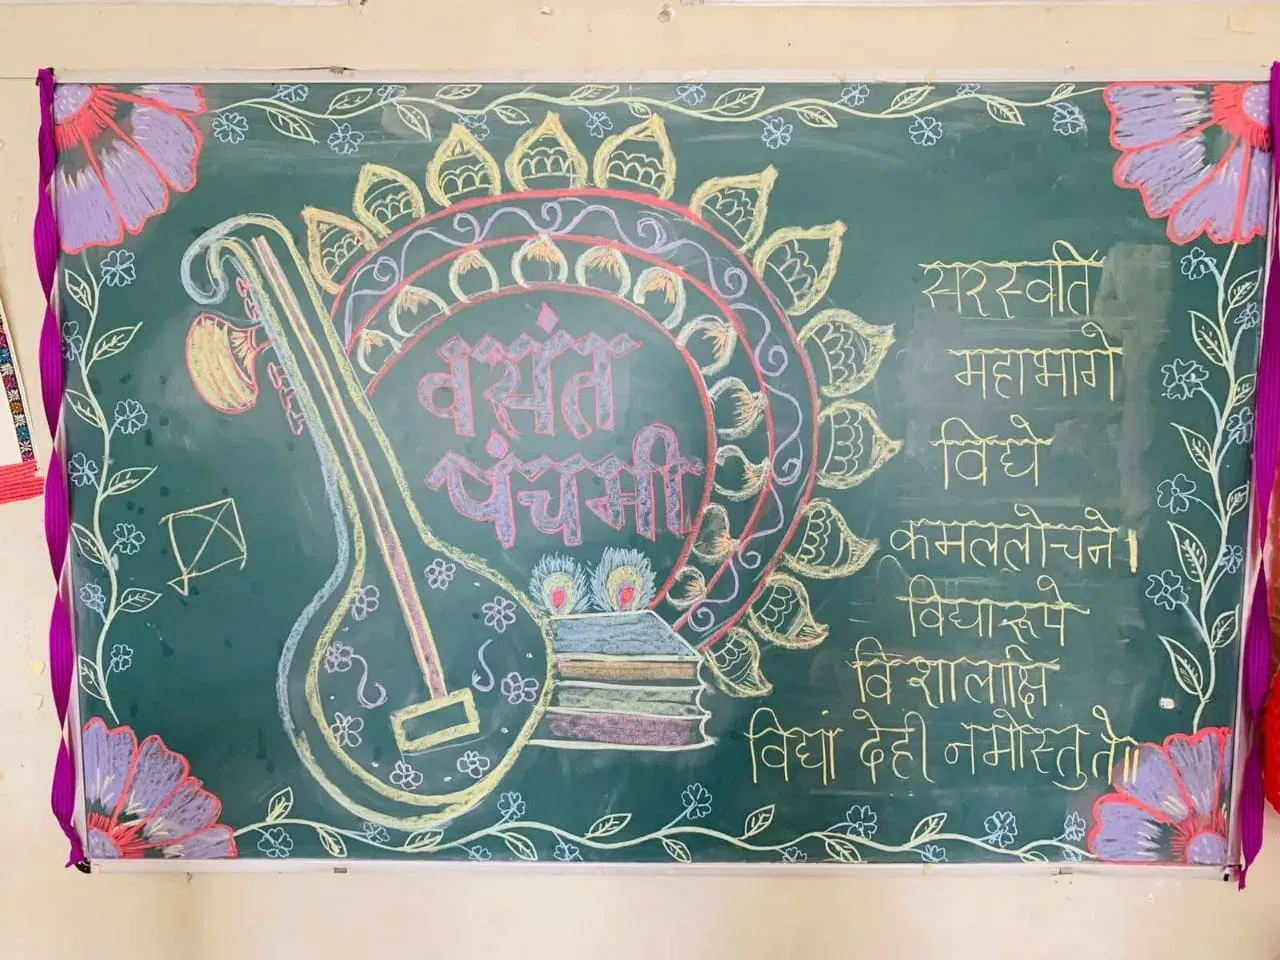 वसंत
पंचमी
सरस्वति
महाभागे
विद्ये
कमललोचने।
विद्यारूपे
विशालाक्षि
विद्यां देही नमोस्तुते॥